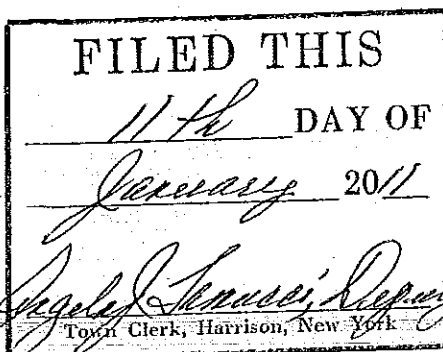 FILED THIS
11th DAY OF
January 2011
Deputy
Town Clerk, Harrison, New York